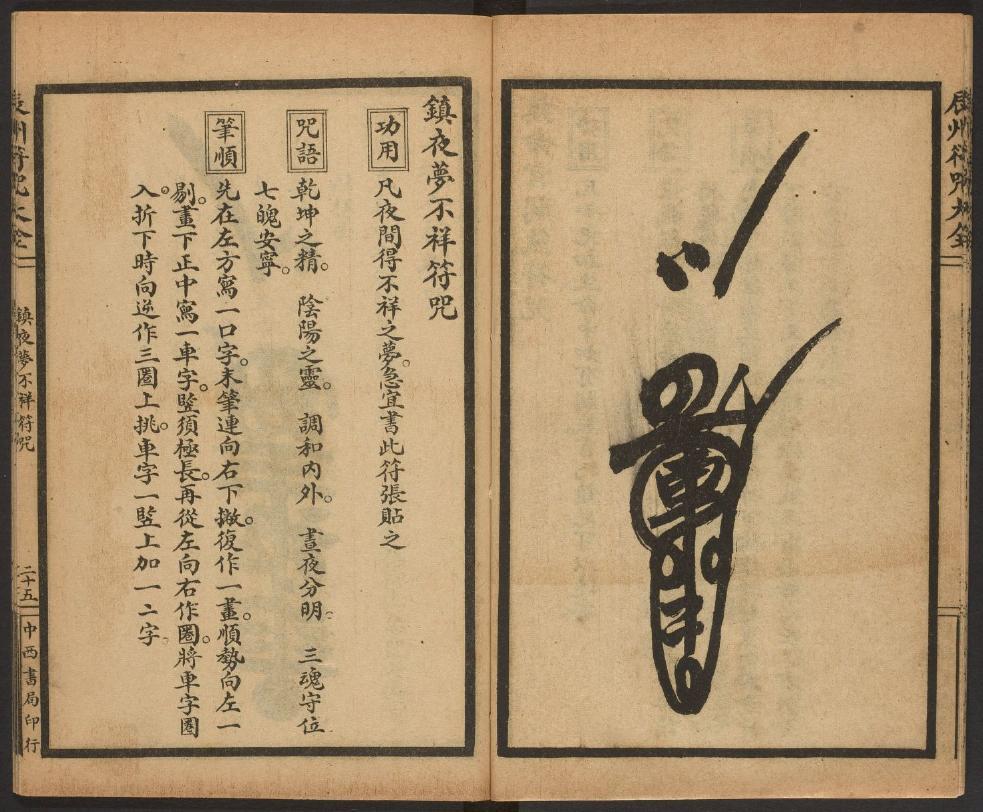 辰州符咒大全
鎮夜夢不祥符咒
功用 凡夜間得不祥之夢。急宜書此符張貼之
咒語 乾坤之精。 陰陽之靈。 調和內外。 晝夜分明。 三魂守位
七魄安寧。
筆順 先在左方寫一口字。末筆連向右下撇。復作一畫。順勢向左一
剔。畫下正中寫一車字。豎須極長。再從左向右作圈。將車字圈
入。折下時向逆作三圈上挑。車字一豎上加一二字。
辰州符咒大全
鎮夜夢不祥符咒
二十五
中西書局印行